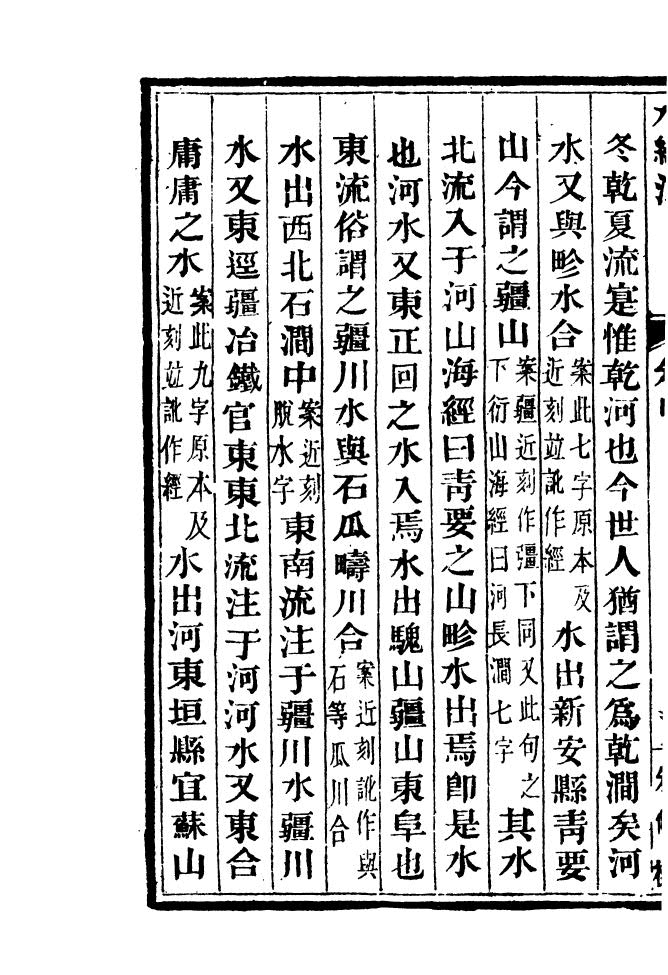 水經注
冬乾夏流寔惟乾河也今世人猶謂之爲乾澗矣河
水又與畛水合案此七字原本及近刻竝訛作經水出新安縣靑要
山今謂之疆山案疆近刻作彊下同又此句之下衍山海經曰河長澗七字其水
北流入于河山海經曰靑要之山畛水出焉卽是水
也河水又東正回之水入焉水出騩山疆山東阜也
東流俗謂之疆川水與石瓜疇川合案近刻訛作與石等瓜川合
水出西北石澗中案近刻脫水字東南流注于疆川水疆川
水又東逕疆冶鐵官東東北流注于河河水又東合
庸庸之水案此九字原本及近刻竝訛作經水出河東垣縣宜蘇山